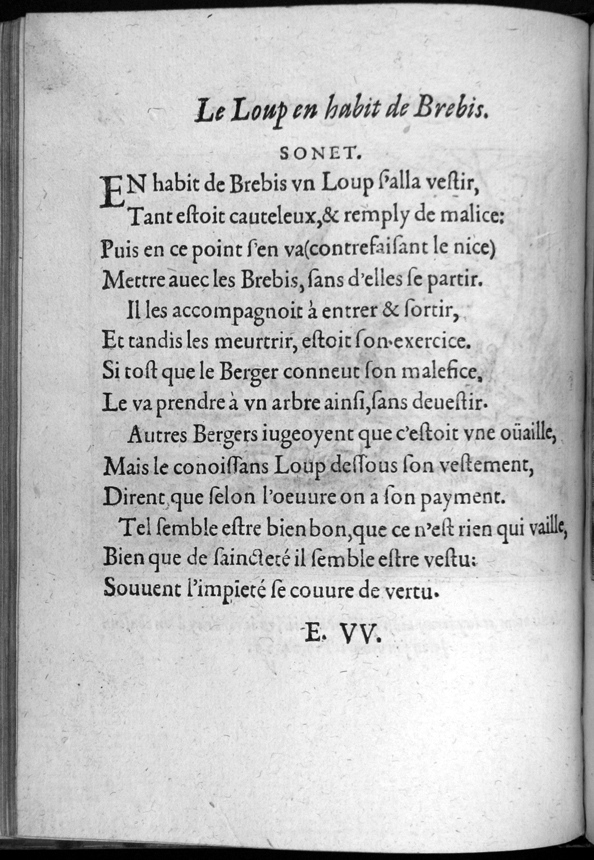 Le Loup en habit de Brebis.
SONET.
EN habit de Brebis vn Loup ſ'alla veſtir,
Tant eſtoit cauteleux,& remply de malice:
Puis en ce point ſ'en va(contrefaiſant le nice)
Mettre auec les Brebis, ſans d'elles ſe partir.
Il les accompagnoit à entrer & ſortir,
Et tandis les meurtrir, eſtoit ſon exercice.
Si toſt que le Berger conneut ſon malefice,
Le va prendre à vn arbre ainſi,ſans deueſtir.
Autres Bergers iugeoyent que c'eſtoit vne oüaille,
Mais le conoiſſans Loup deſſous ſon veſtement,
Dirent,que ſelon l'oeuure on a ſon payment.
Tel ſemble eſtre bien bon,que ce n'eſt rien qui vaille,
Bien que de ſaincteté il ſemble eſtre veſtu:
Souuent l'impieté ſe couure de vertu.
E. VV.